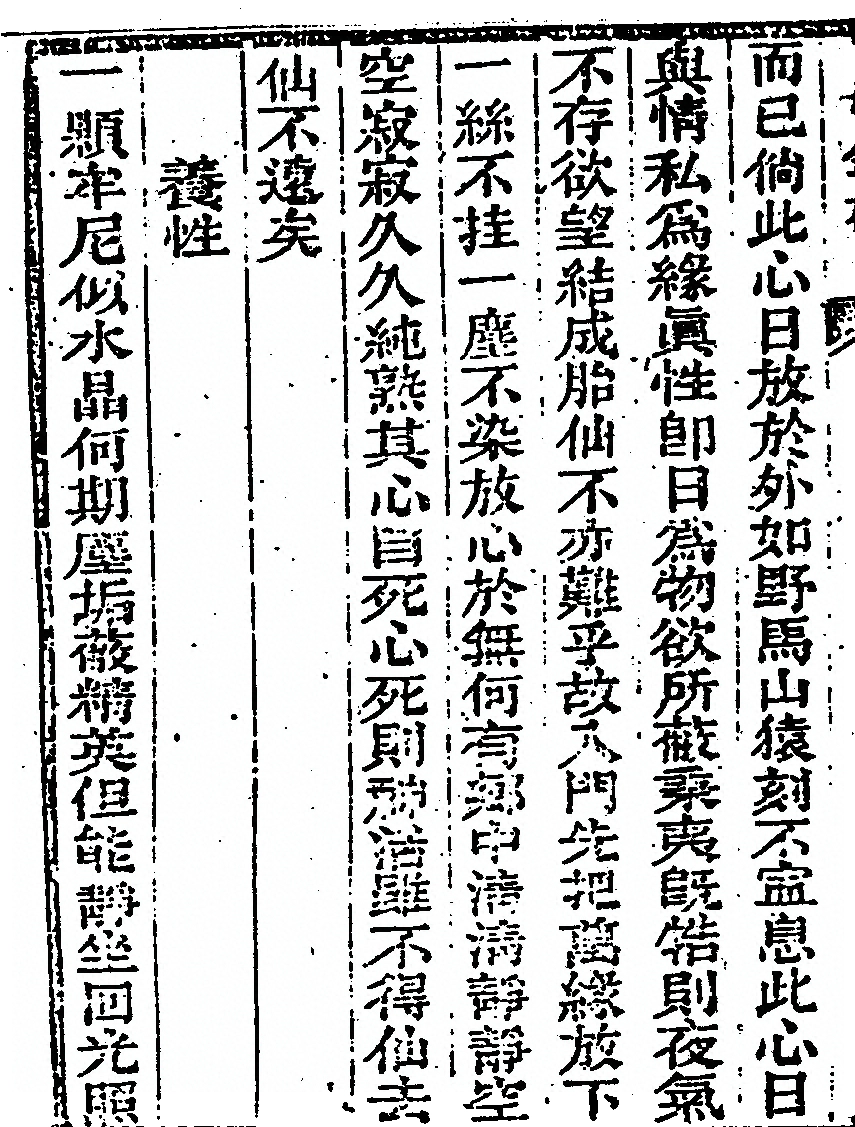 而已倘此心日放於外如野馬山猿刻不寍息此心日
與情私爲緣眞性卽日爲物欲所蔽秉夷旣牿則夜氣
不存欲望結成胎仙不亦難乎故入門先把萬緣放下
一絲不挂一塵不染放心於無何有鄉中清清靜靜空
空寂寂久久純熟其心自死心死則神活雖不得仙去
仙不遠矣
養性
一顆牟尼似水晶何期塵垢蔽精英但能靜坐回光照